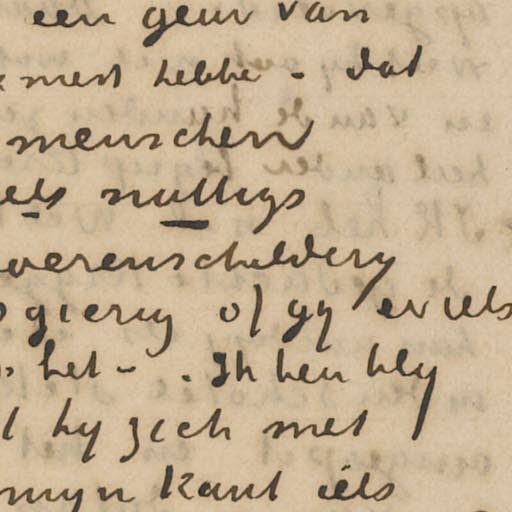 een geur van
mest hebbe - dat
menschen
iets nuttigs
oerenschildery
sgierig of gy er iets
het - . Ik ben bly
t hy zich met
myn kant iets